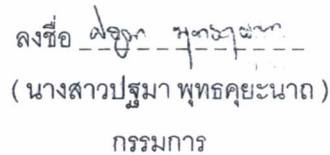 ลงชื่อ
( นางสาวปฐมา พุทธคุยะนาถ )
กรรมการ